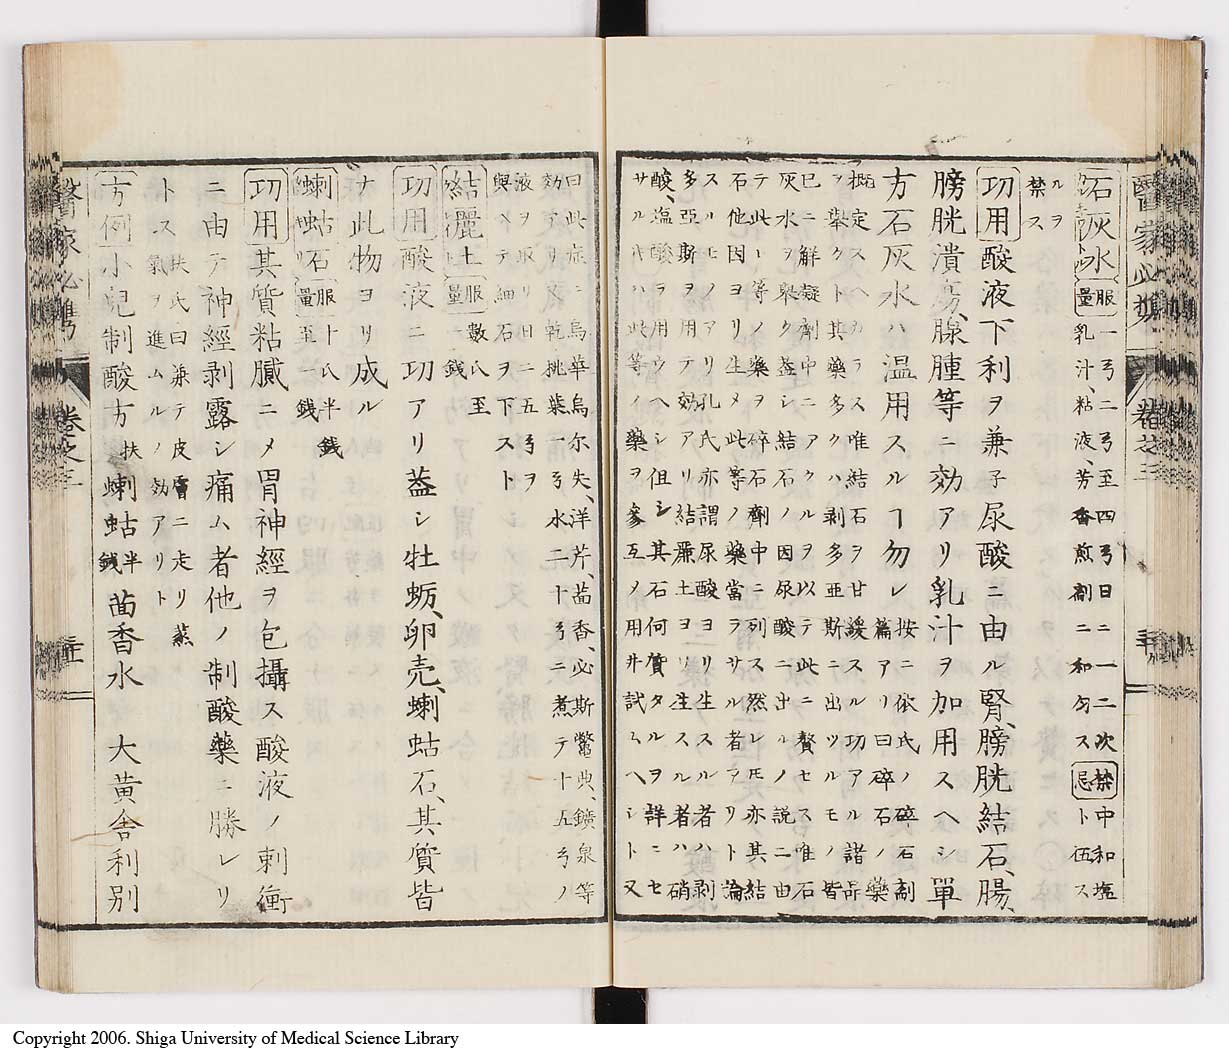 醫家必携
卷之三
石灰水
服量
一弓二弓至四弓日ニ一二次
乳汁、粘液、芳香煎剤ニ和匀ス
禁忌
中和塩
ト伍ス
ルヲ
禁ス
功用酸液下利ヲ兼子尿酸ニ由ル腎、膀胱結石、腸、
膀胱潰瘍、腺腫等ニ効アリ乳汁ヲ加用スヘシ單
方石灰水ハ温用スルヿ勿レ
按ニ依氏ノ碎石劑
篇アリ曰碎石ノ藥
定スヘカラス唯結石ヲ甘緩スルノ功アル諸品
挙クト其藥多クハ剥多亜斯ニ出ツルモノ皆
已ニ解凝劑中ニアクルヲ以テ此ニ贅セス唯石
灰水ヲ擧ク蓋シ結石ノ因尿酸ニ出ルノ説ニ由
テ此ニ等ノ藥碎石劑中ニ列ス然レ𪜈亦其結
石他因ヨリ生メ此等ノ藥當ラサル者アリト論
スルモノアリ孔氏亦謂尿酸ヨリ生スル者ハ剥
多亜斯ヲ用テ効アリ結麗土ヨリ生スル者ハ硝
酸、塩酸ヲ用ウヘシ但シ其石何質タルヲ詳ニセ
サルキハ此等ノ藥ヲ參互ノ用井試ムヘシト又
曰此症ニ烏華烏尔失、洋芹、茴香、必斯鼈典、鑛泉等
効アリ乾桃葉一弓水二十弓ニ煮テ十五弓ノ
液ヲ取リ日ニ五弓ヲ
與ヘテ細石ヲ下スト
結麗土
服量
數氏至
一錢
功用酸液ニ功アリ蓋シ牡蛎、卵壳、蝲蛄石、其質皆
ナ此物ヨリ成ル
蝲蛄石
服量
十氏半錢
ヨリ至一錢
功用其質粘膩ニメ胃神經ヲ包攝ス酸液ノ刺衝
ニ由テ神經剥露シ痛ム者他ノ制酸藥ニ勝レリ
トス
扶氏曰兼テ皮膚ニ走リ蒸
氣ヲ進ムルノ効アリト
方例小兒制酸方扶
蝲蛄半錢
茴香水
大黄舎利別
醫家必携
卷之三